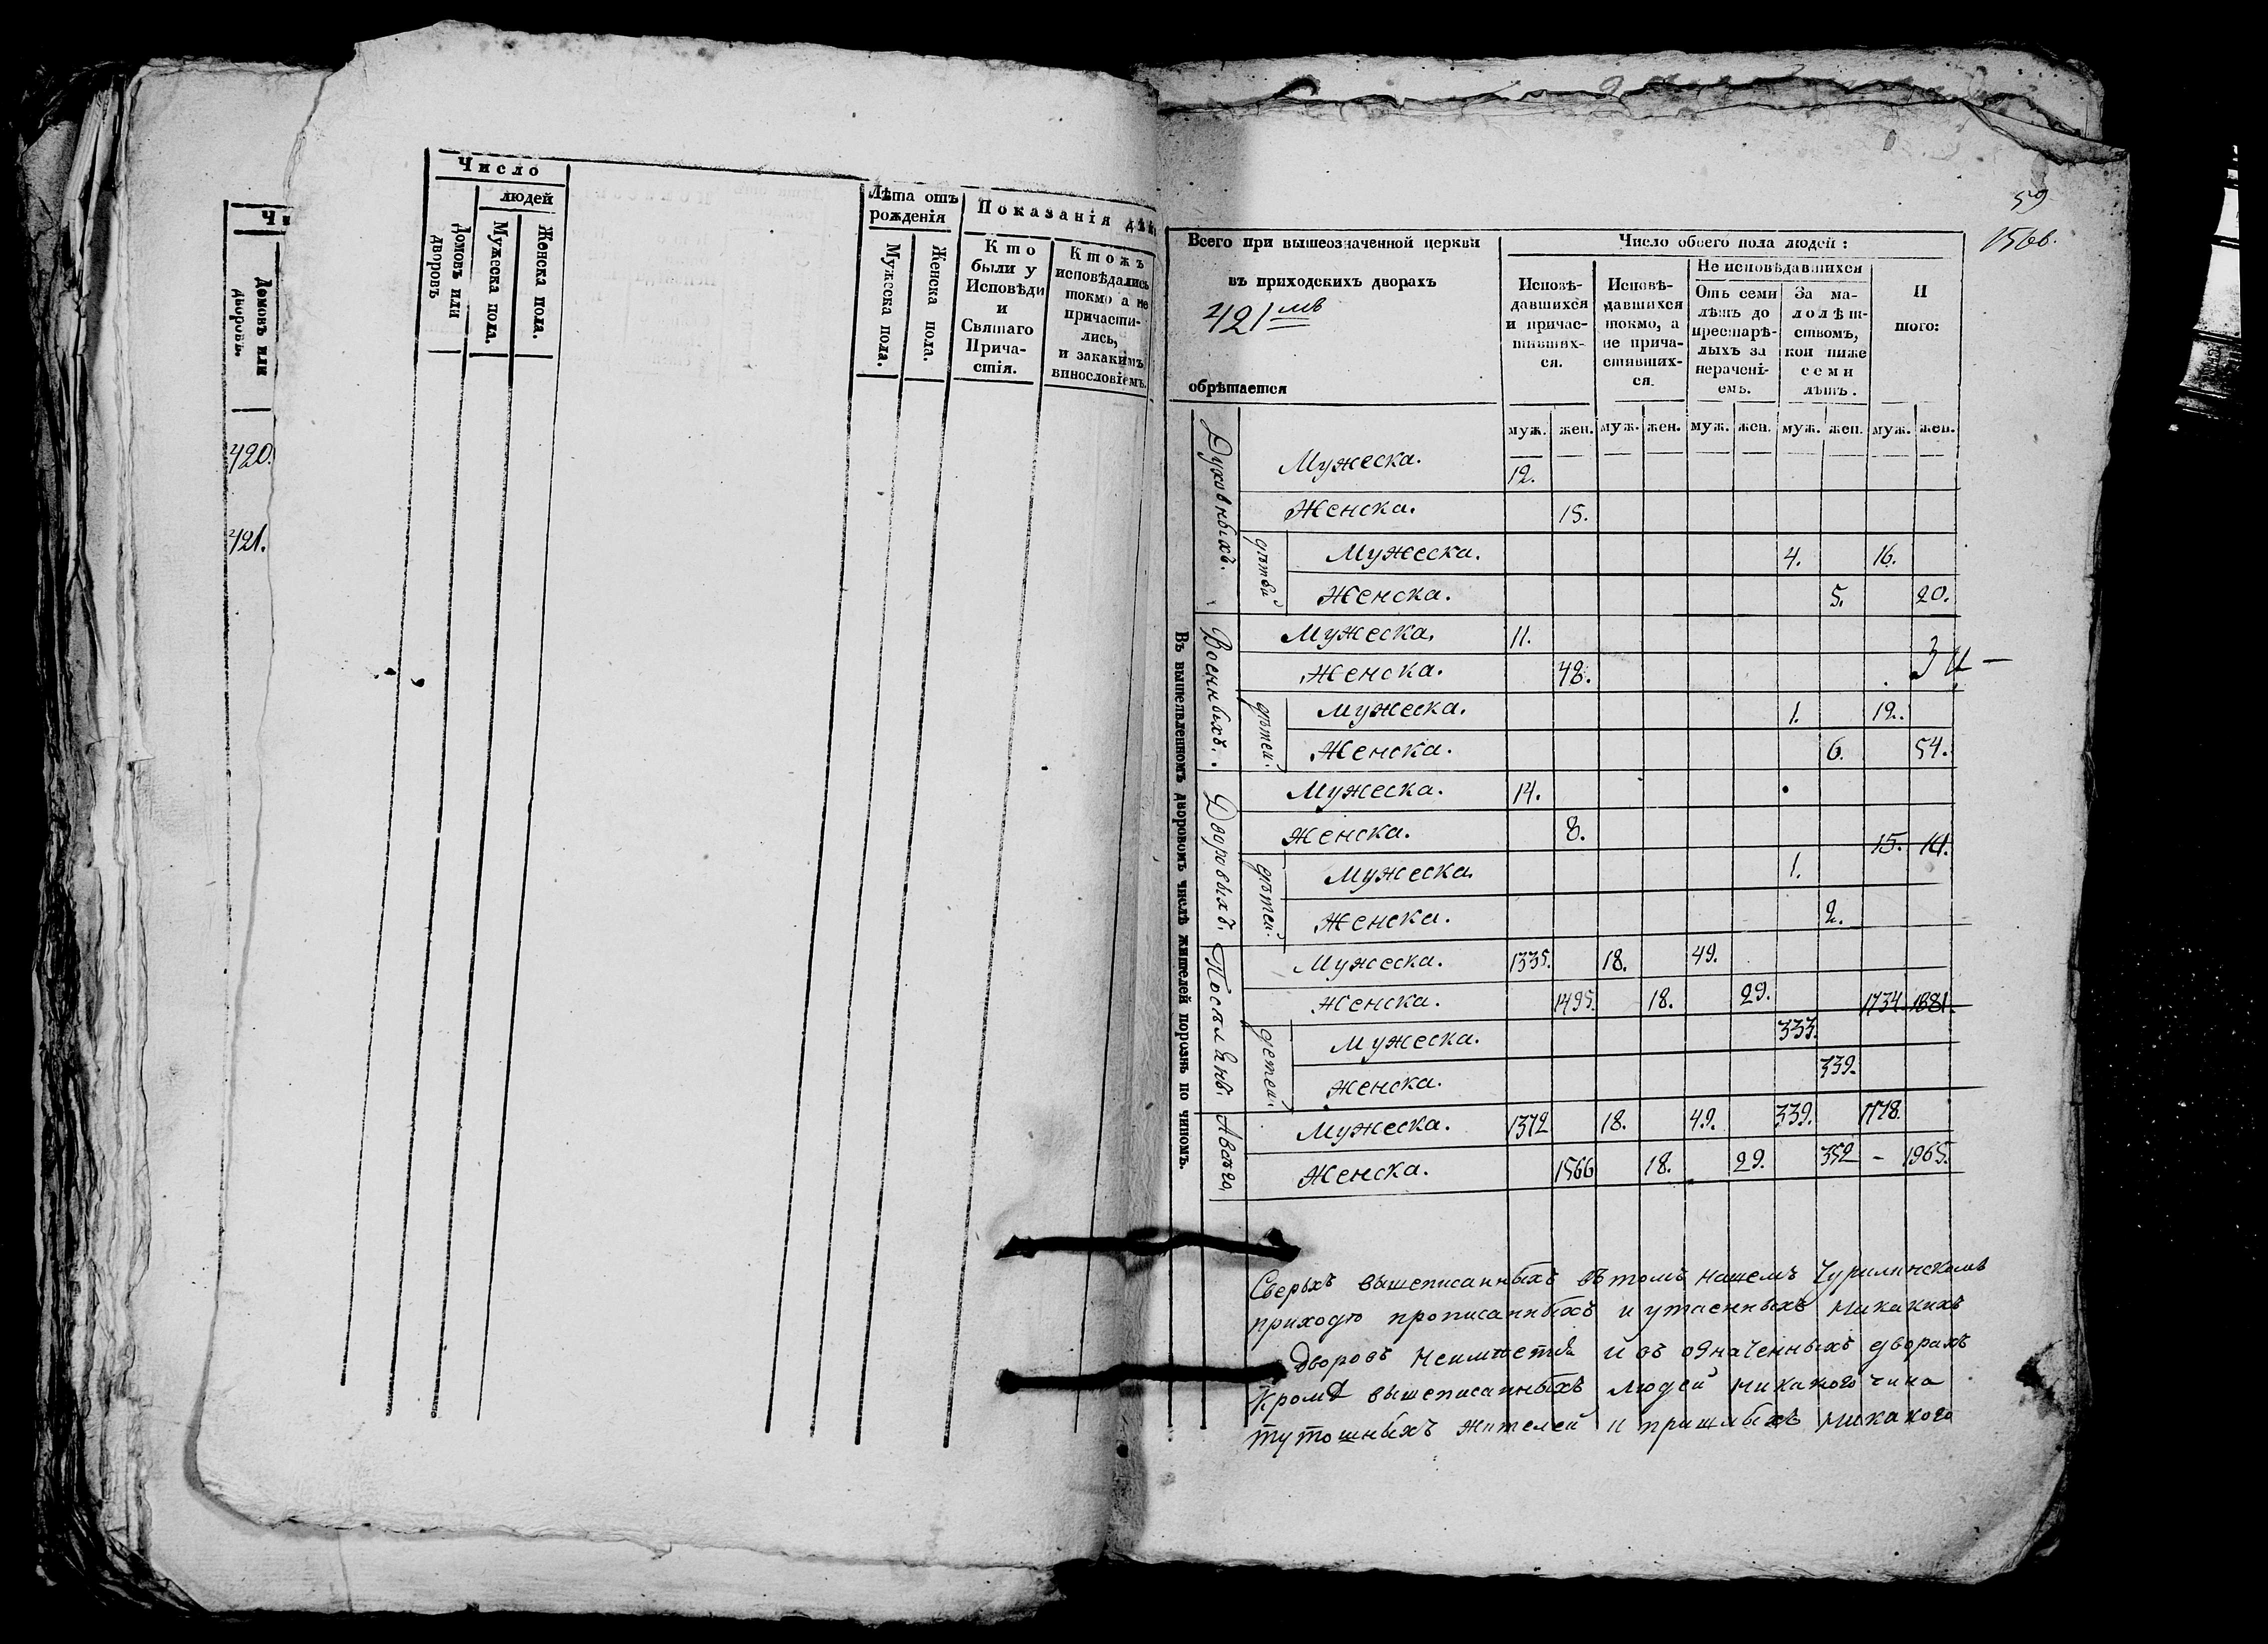 Чи
Домовъ или
дворовъ.
420.
421.
Число
людей
Домовъ или
дворовъ
Мужеска пола.
Женска пола.
Лѣта отъ
рожденія
Мужеска пола.
Женска пола.
Показанія дѣй
Кто
были у
Исповѣди
и
Святаго
Прича-
стія.
Ктожъ
исповѣдались
токмо а не
причасти-
лись,
и закакимъ
винословіемъ.
59
156в.
Всего при вышеозначенной церкви
въ приходскихъ дворахъ
421мъ
обрѣтается
Число обоего пола людей:
Исповѣ-
давшихся
и причас-
тивших-
ся.
Исповѣ-
давшихся
токмо, а
не прича-
стивших-
ся.
Не исповѣдавшихся
Отъ семи
лѣтъ до
престарѣ-
лыхъ за
нерачені-
емъ.
За ма-
лолѣт-
ствомъ,
кои ниже
семи
лѣтъ.
И
того:
муж. жен. муж. жен. муж. жен. муж. жен. муж. жен.
Въ вышеявленномъ дворовомъ числѣ жителей порознь по чиномъ.
Духовныхъ.
Мужеска. 12.
Женска. 15.
дѣтей
Мужеска. 4. 16.
Женска. 5. 20.
Военныхъ.
Мужеска. 11.
Женска. 48.
дѣтей.
Мужеска. 1. 12.
Женска. 6. 54.
Дворовыхъ.
Мужеска. 14.
Женска. 8. 15. 10.
дѣтей.
Мужеска. 1.
Женска. 2.
Поселянъ.
Мужеска. 1335. 18. 49.
Женска. 1495. 18. 29. 1734. 1881.
детей.
Мужеска. 333.
Женска. 339.
Авсего
Мужеска. 1372 18. 49. 339. 1778.
Женска. 1566 18. 29. 352 - 1965.
Сверьхъ вышеписанныхъ вътомъ нашемъ Чурилинскомъ
приходѣ прописанныхъ и утаенныхъ никакихъ
дворовъ неимѣется и въ означенныхъ дворахъ
кромѣ вышеписанныхъ людей никакого чина
тутошныхъ жителей и пришлыхъ никакого